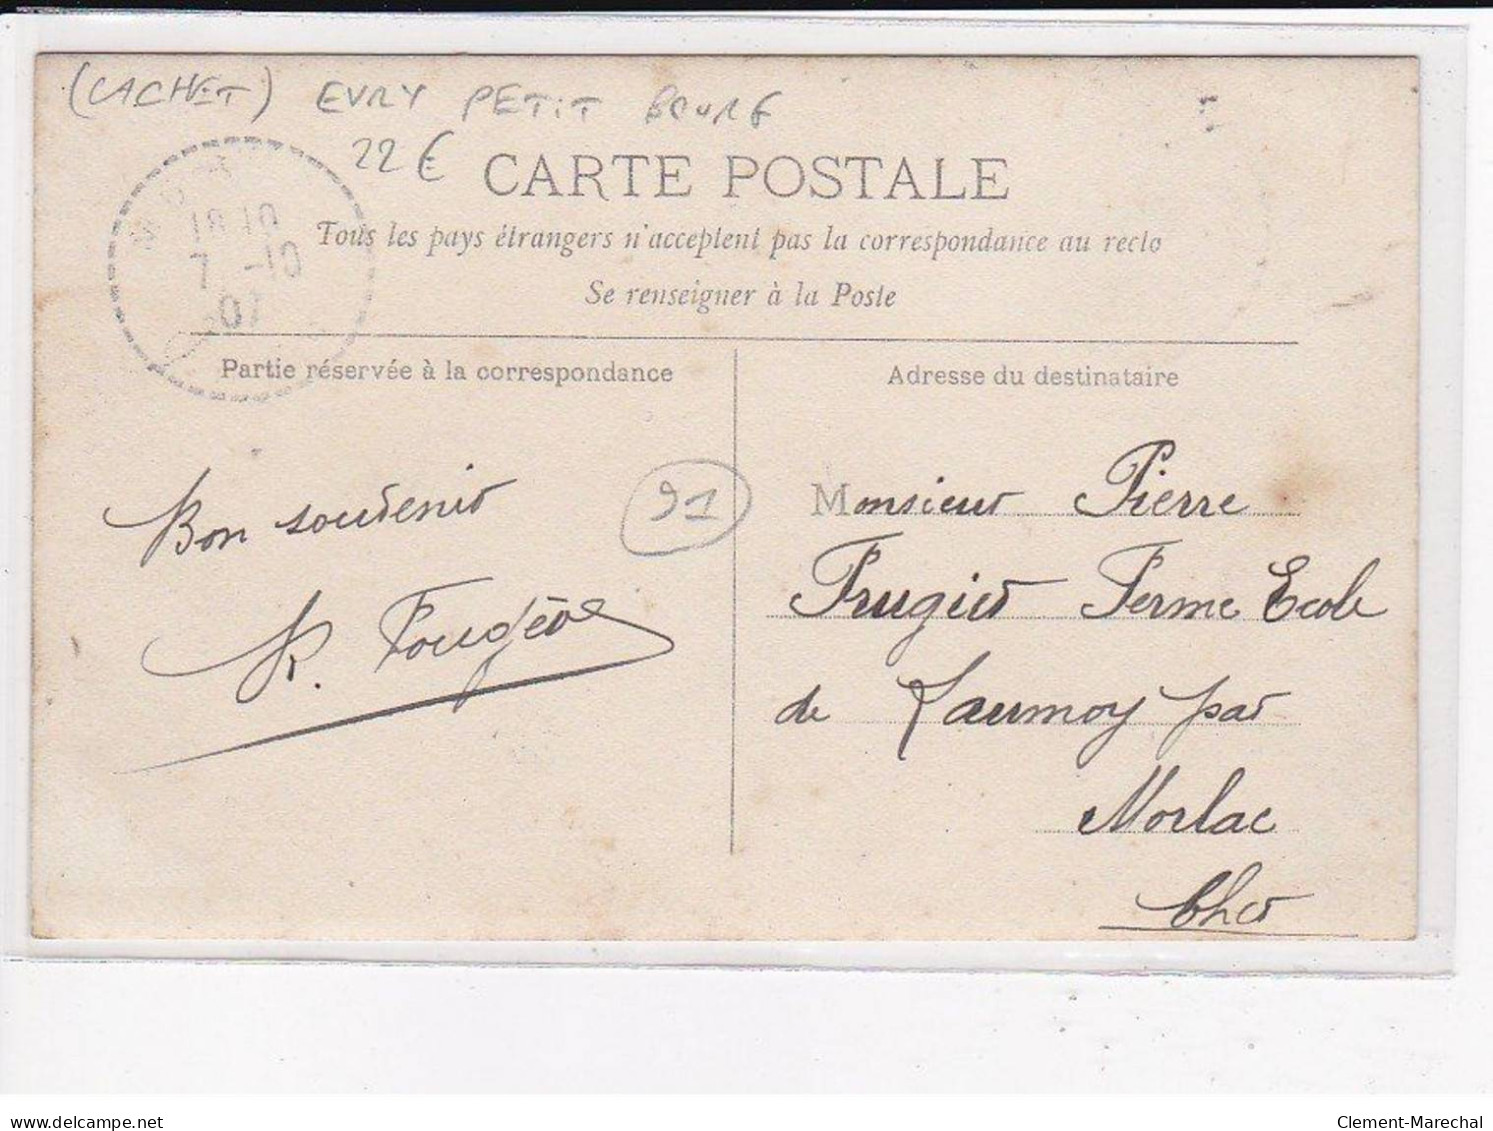 (CACHET) EVRY PETIT BOURG
22€
CARTE POSTALE
18 10
7 -10
07
Tous les pays étrangers n'acceptent pas la correspondance au recto
Se renseigner à la Poste
Partie réservée à la correspondance
Adresse du destinataire
Bon souvenir
91
Monsieur Pierre
Frugier Ferme Ecole
de Laumoy par
Morlac
Cher
delcampe.net
Clement-Marechal